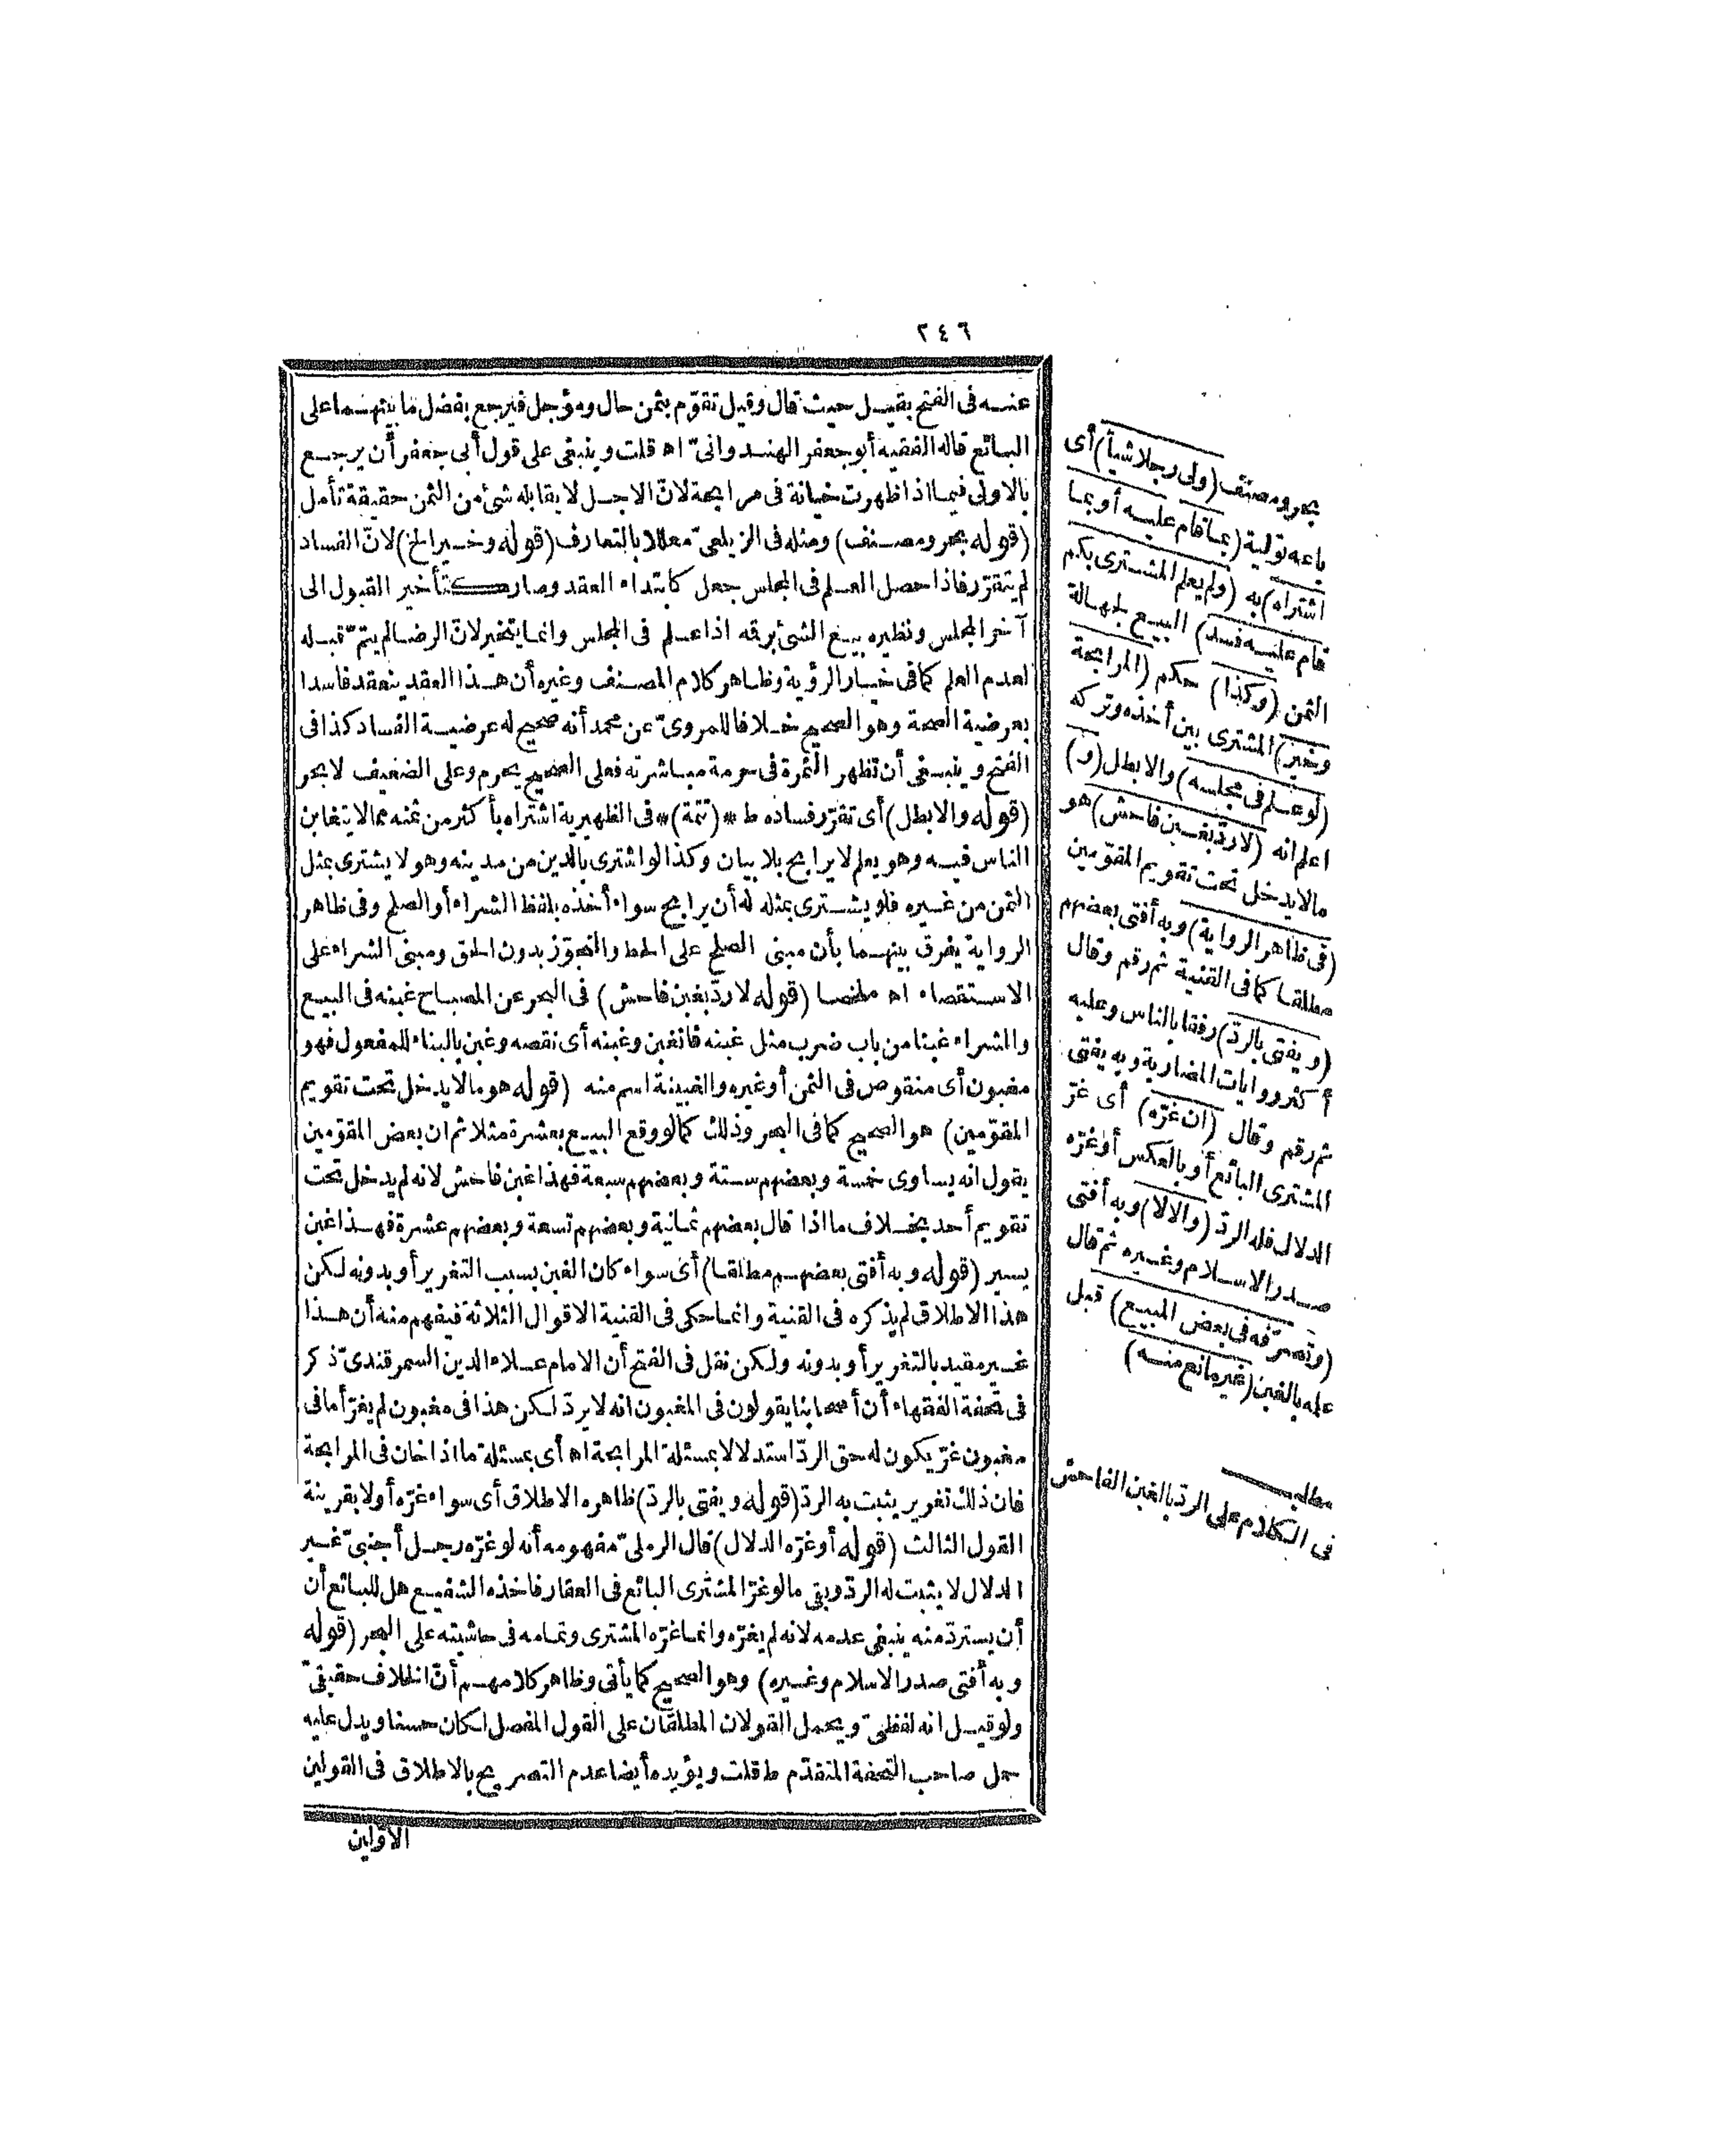 ٢٤٦
عنه فى الفتح بقيل حيث قال وقيل تقوّم بثمن حال ومؤجل فيرجع بفضل ما بينهما على
البائع قاله الفقيه أبو جعفر الهندوانىّ اه قلت وينبغى على قول أبى جعفر أن يرجع
بالاولى فيما اذا ظهرت خيانة فى مرابحة لانّ الاجل لا يقابله شئ من الثمن حقيقة تأمل
(قوله بحر ومصنف) ومثله فى الزيلعىّ معللا بالتعارف (قوله وخير الخ) لانّ الفساد
لم يتقرّر فاذا حصل العلم فى المجلس جعل كابتداء العقد وصار كتأخير القبول الى
آخر المجلس ونظيره بيع الشئ برقه اذا علم فى المجلس وانما يتخير لانّ الرضا لم يتمّ قبله
لعدم العلم كما فى خيار الرؤية وظاهر كلام المصنف وغيره أن هذا العقد ينعقد فاسدا
بعرضية الصحة وهو الصحيح خلافا للمروىّ عن محمد أنه صحيح له عرضية الفساد كذا فى
الفتح وينبغى أن تظهر الثمرة فى حرمة مباشرته فعلى الصحيح يحرم وعلى الضعيف لا بحر
(قوله والا بطل) أى تقرّر فساده ط * (تتمة) * فى الظهيرية اشتراه بأكثر من ثمنه مما لا يتغابن
الناس فيه وهو يعلم لا يرابح بلا بيان وكذا لو اشترى بالدين من مدينه وهو لا يشترى بمثل
الثمن من غيره فلو يشترى بمثله له أن يرابح سواء أخذه بلفظ الشراء أو الصلح وفى ظاهر
الرواية يفرق بينهما بأن مبنى الصلح على الحط والتجوّز بدون الحق ومبنى الشراء على
الاستقصاء اه ملخصا (قوله لا ردّ بغبن فاحش) فى البحر عن المصباح غبنه فى البيع
والشراء غبنا من باب ضرب مثل غبنه فانغبن وغبنه أى نقصه وغبن بالبناء للمفعول فهو
مغبون أى منقوص فى الثمن أو غيره والغبينة اسم منه (قوله هو ما لا يدخل تحت تقويم
المقوّمين) هو الصحيح كما فى البحر وذلك كما لو وقع البيع بعشرة مثلا ثم ان بعض المقوّمين
يقول انه يساوى خمسة وبعضهم ستة وبعضهم سبعة فهذا غبن فاحش لانه لم يدخل تحت
تقويم أحد بخلاف ما اذا قال بعضهم ثمانية وبعضهم تسعة وبعضهم عشرة فهذا غبن
يسير (قوله وبه أفتى بعضهم مطلقا) أى سواء كان الغبن بسبب التغرير أو بدونه لكن
هذا الاطلاق لم يذكره فى القنية وانما حكى فى القنية الاقوال الثلاثة فيفهم منه أن هذا
غير مقيد بالتغرير أو بدونه ولكن نقل فى الفتح أن الامام علاء الدين السمرقندىّ ذكر
فى تحفة الفقهاء أن أصحابنا يقولون فى المغبون انه لا يردّ لكن هذا فى مغبون لم يغرّ أما فى
مغبون غرّ يكون له حق الردّ استدلالا بمسئلة المرابحة اه أى بمسئلة ما اذا خان فى المرابحة
فان ذلك تغرير يثبت به الردّ (قوله ويفتى بالردّ) ظاهره الاطلاق أى سواء غرّه أو لا بقرينة
القول الثالث (قوله أو غرّه الدلال) قال الرملىّ مفهومه أنه لو غرّه رجل أجنبىّ غير
الدلال لا يثبت له الردّ وبقى ما لو غرّ المشترى البائع فى العقار فاخذه الشفيع هل للبائع أن
أن يستردّ منه ينبغى عدمه لانه لم يغرّه وانما غرّه المشترى وتمامه فى حاشيته على البحر (قوله
وبه أفتى صدر الاسلام وغيره) وهو الصحيح كما يأتى وظاهر كلامهم أنّ الخلاف حقيقىّ
ولو قيل انه لفظىّ ويحمل القولان المطلقان على القول المفصل لكان حسنا ويدل عليه
حمل صاحب التحفة المتقدّم ط قلت ويؤيده أيضا عدم التصريح بالاطلاق فى القولين
الاوّلين
بحر ومصنف (ولى رجلا شيأ) أى
باعه تولية (بما قام عليه أو بما
اشتراه) به (ولم يعلم المشترى بكم
قام عليه فسد) البيع لجهالة
الثمن (وكذا) حكم (المرابحة
وخير) المشترى بين أخذه وتركه
(لو علم فى مجلسه) والا بطل (و)
اعلم انه (لا ردّ بغبن فاحش) هو
ما لا يدخل تحت تقويم المقوّمين
(فى ظاهر الرواية) وبه أفتى بعضهم
مطلقا كما فى القنية ثم رقم وقال
(ويفتى بالردّ) رفقا بالناس وعليه
أكثر روايات المضاربة وبه يفتى
ثم رقم وقال (ان غرّه) أى غرّ
المشترى البائع أو بالعكس أو غرّه
الدلال فله الردّ (والا لا) وبه أفتى
صدر الاسلام وغيره ثم قال
(وتصرّفه فى بعض المبيع) قبل
علمه بالغبن (غير مانع منه)
مطلب
فى الكلام على الردّ بالغبن الفاحش